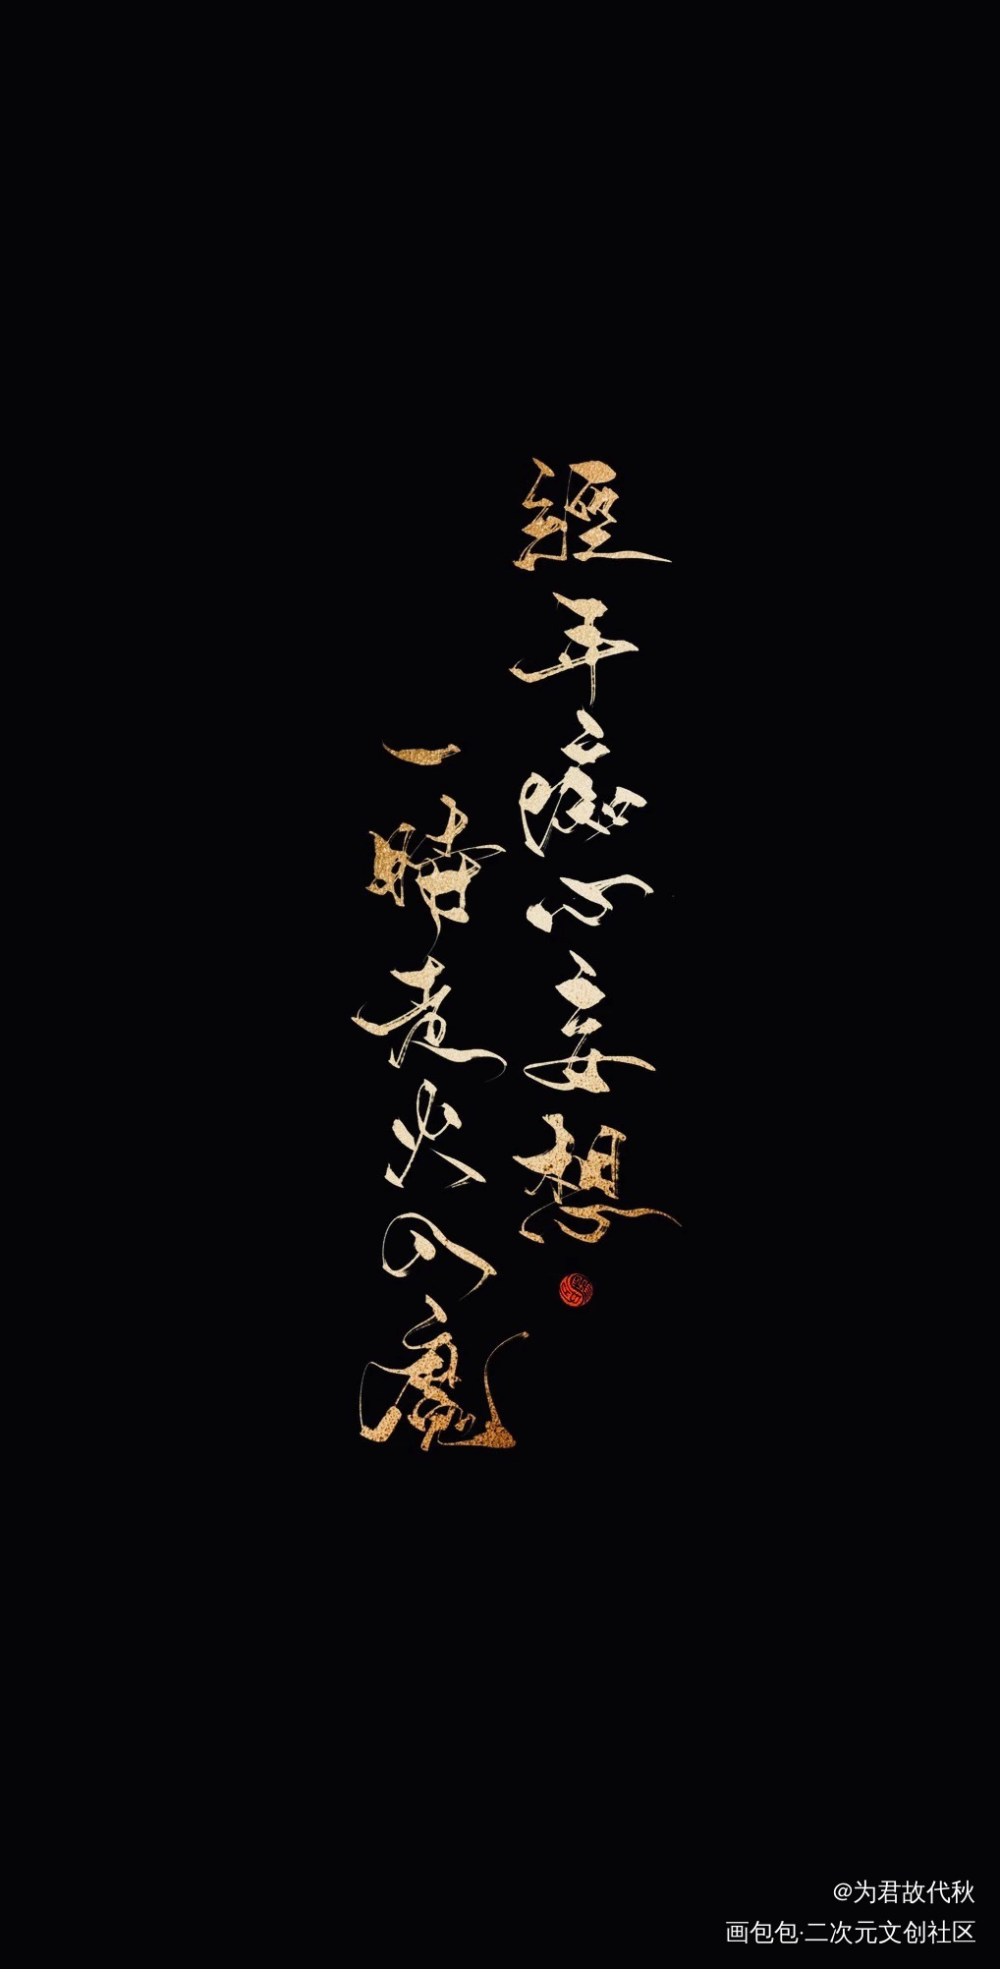 經年痴心妄想
一時走火入魔
@为君故代秋
画包包·二次元文创社区